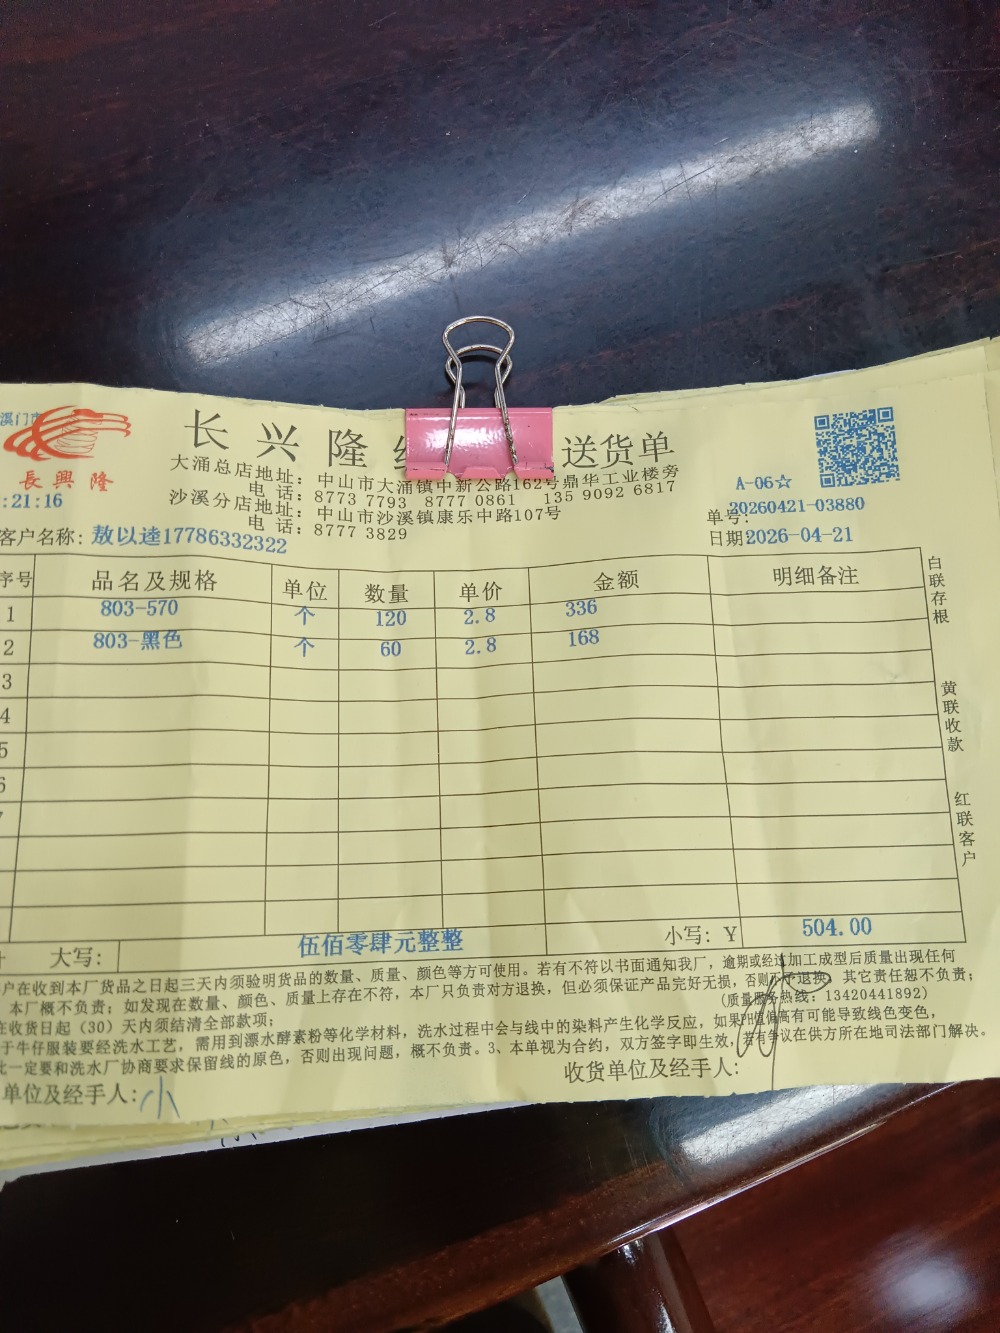 长兴隆 送货单
溪门市
長興隆
:21:16
大涌总店地址：中山市大涌镇中新公路162号鼎华工业楼旁
电话：8773 7793 8777 0861 135 9092 6817
沙溪分店地址：中山市沙溪镇康乐中路107号
电话：8777 3829
A-06☆
单号：20260421-03880
日期：2026-04-21
客户名称：敖以逵17786332322
序号 品名及规格 单位 数量 单价 金额 明细备注
1 803-570 个 120 2.8 336
2 803-黑色 个 60 2.8 168
3
4
5
6
白联存根
黄联收款
红联客户
大写： 伍佰零肆元整整 小写：Y 504.00
户在收到本厂货品之日起三天内须验明货品的数量、质量、颜色等方可使用。若有不符以书面通知我厂，逾期或经过加工成型后质量出现任何
本厂概不负责；如发现在数量、颜色、质量上存在不符，本厂只负责对方退换，但必须保证产品完好无损，否则不予退换，其它责任恕不负责；
(质量服务热线：13420441892)
在收货日起（30）天内须结清全部款项；
于牛仔服装要经洗水工艺，需用到漂水酵素粉等化学材料，洗水过程中会与线中的染料产生化学反应，如果PH值偏高有可能导致线色变色，
此一定要和洗水厂协商要求保留线的原色，否则出现问题，概不负责。3、本单视为合约，双方签字即生效，若有争议在供方所在地司法部门解决。
单位及经手人：小
收货单位及经手人：